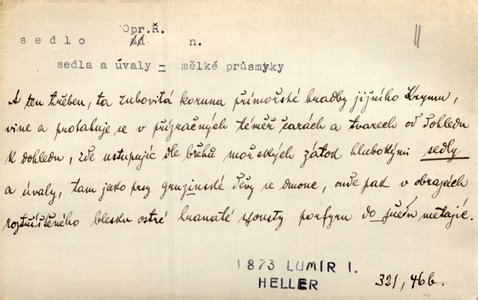 Opr.Ř.
sedlo n.
sedla a úvaly = mělké průsmyky
A ten hřeben, ta zubovitá koruna přímořské hradby jižního Krymu,
vine a protahuje se v přízračných téměř čarách a tvarech od dohledu
k dohledu, zde ustupujíc dle břehů mořských zátok hlubokými sedly
a úvaly, tam jako prsy gruzinské děvy se dmouc, onde pak v obrazech
roztříštěného blesku ostré hranaté spousty porfyru do předu metajíc.
1873 LUMÍR I.
HELLER
321, 46b.